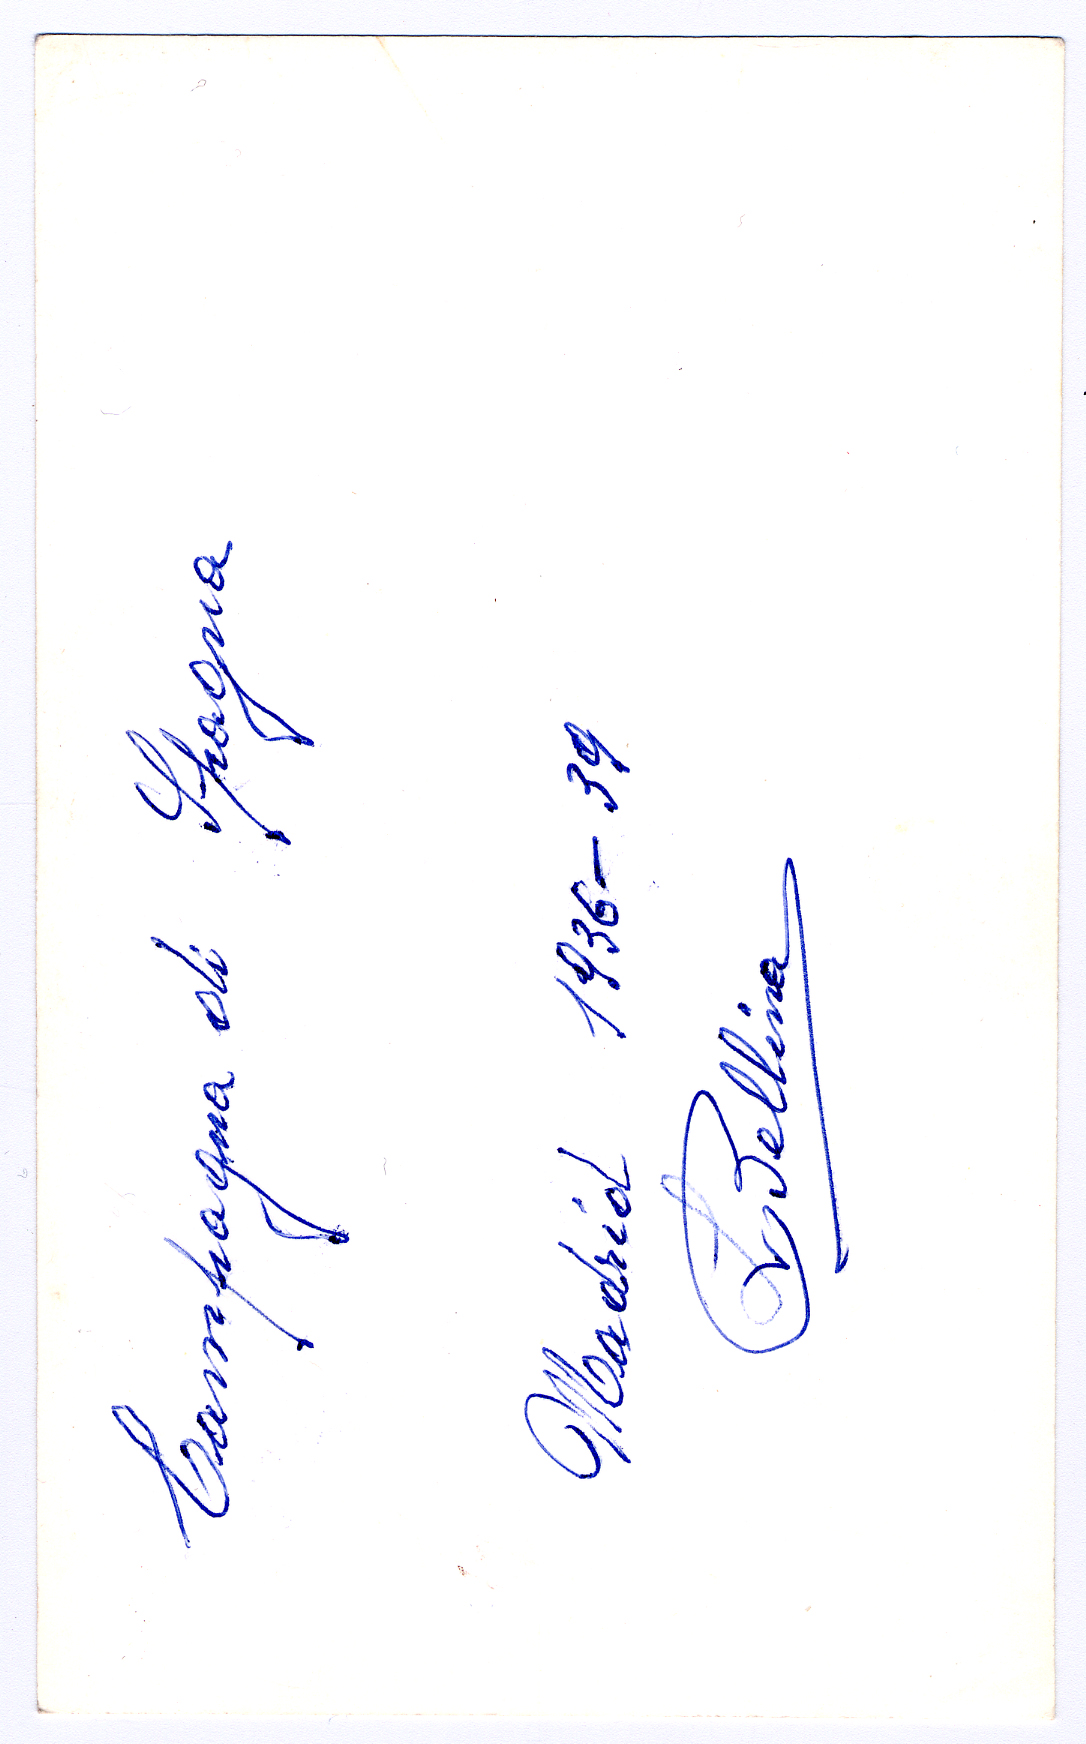 Campagna di Spagna
Madrid 1936-39
Bellina